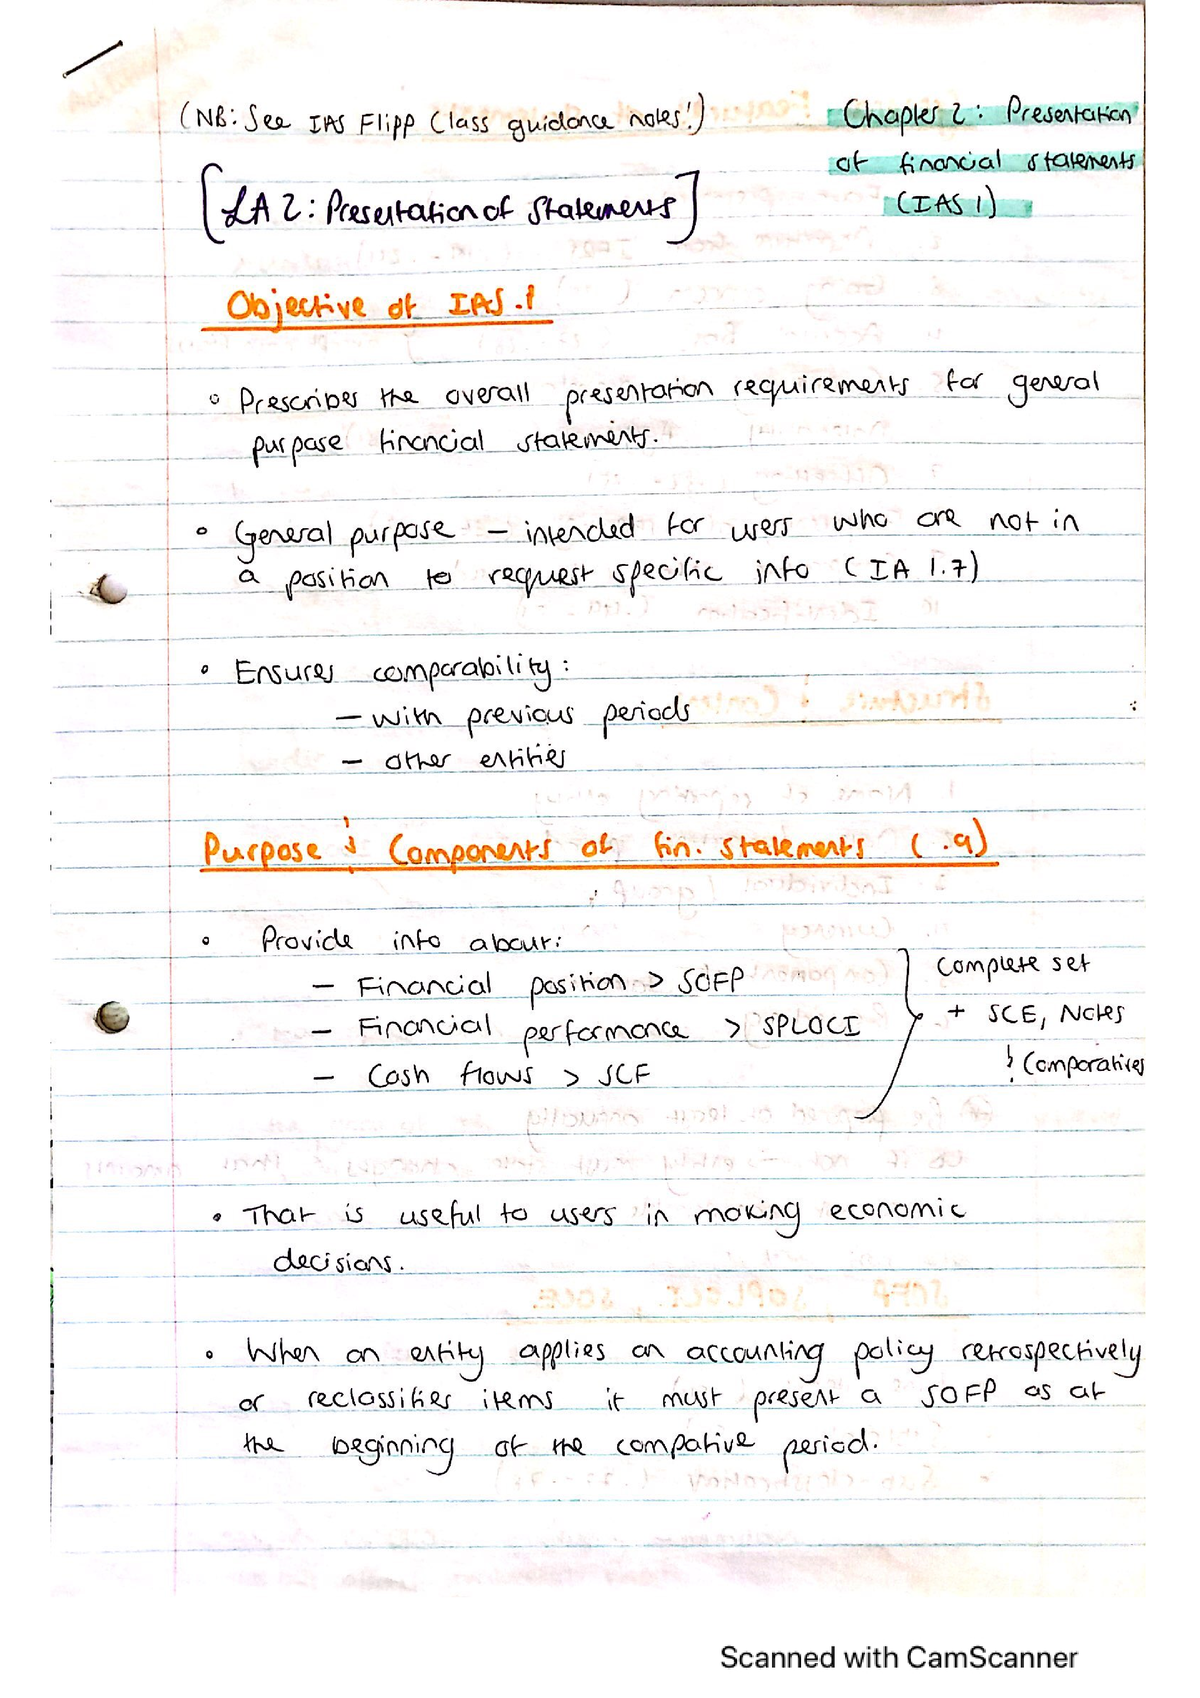 (NB: See IAS Flipp Class guidance notes!)
Chapter 2: Presentation
of financial statements
(IAS 1)
[LA 2: Presentation of Statements]
Objective of IAS.1
• Prescribes the overall presentation requirements for general
purpose financial statements.
• General purpose – intended for users who are not in
a position to request specific info (IA 1.7)
• Ensures comparability:
– with previous periods
– other entities
Purpose & Components of fin. statements (.9)
• Provide info about:
– Financial position > SOFP
– Financial performance > SPLOCI
– Cash flows > SCF
Complete set
+ SCE, Notes
& Comparatives
• That is useful to users in making economic
decisions.
• When an entity applies an accounting policy retrospectively
or reclassifies items it must present a SOFP as at
the beginning of the compative period.
Scanned with CamScanner